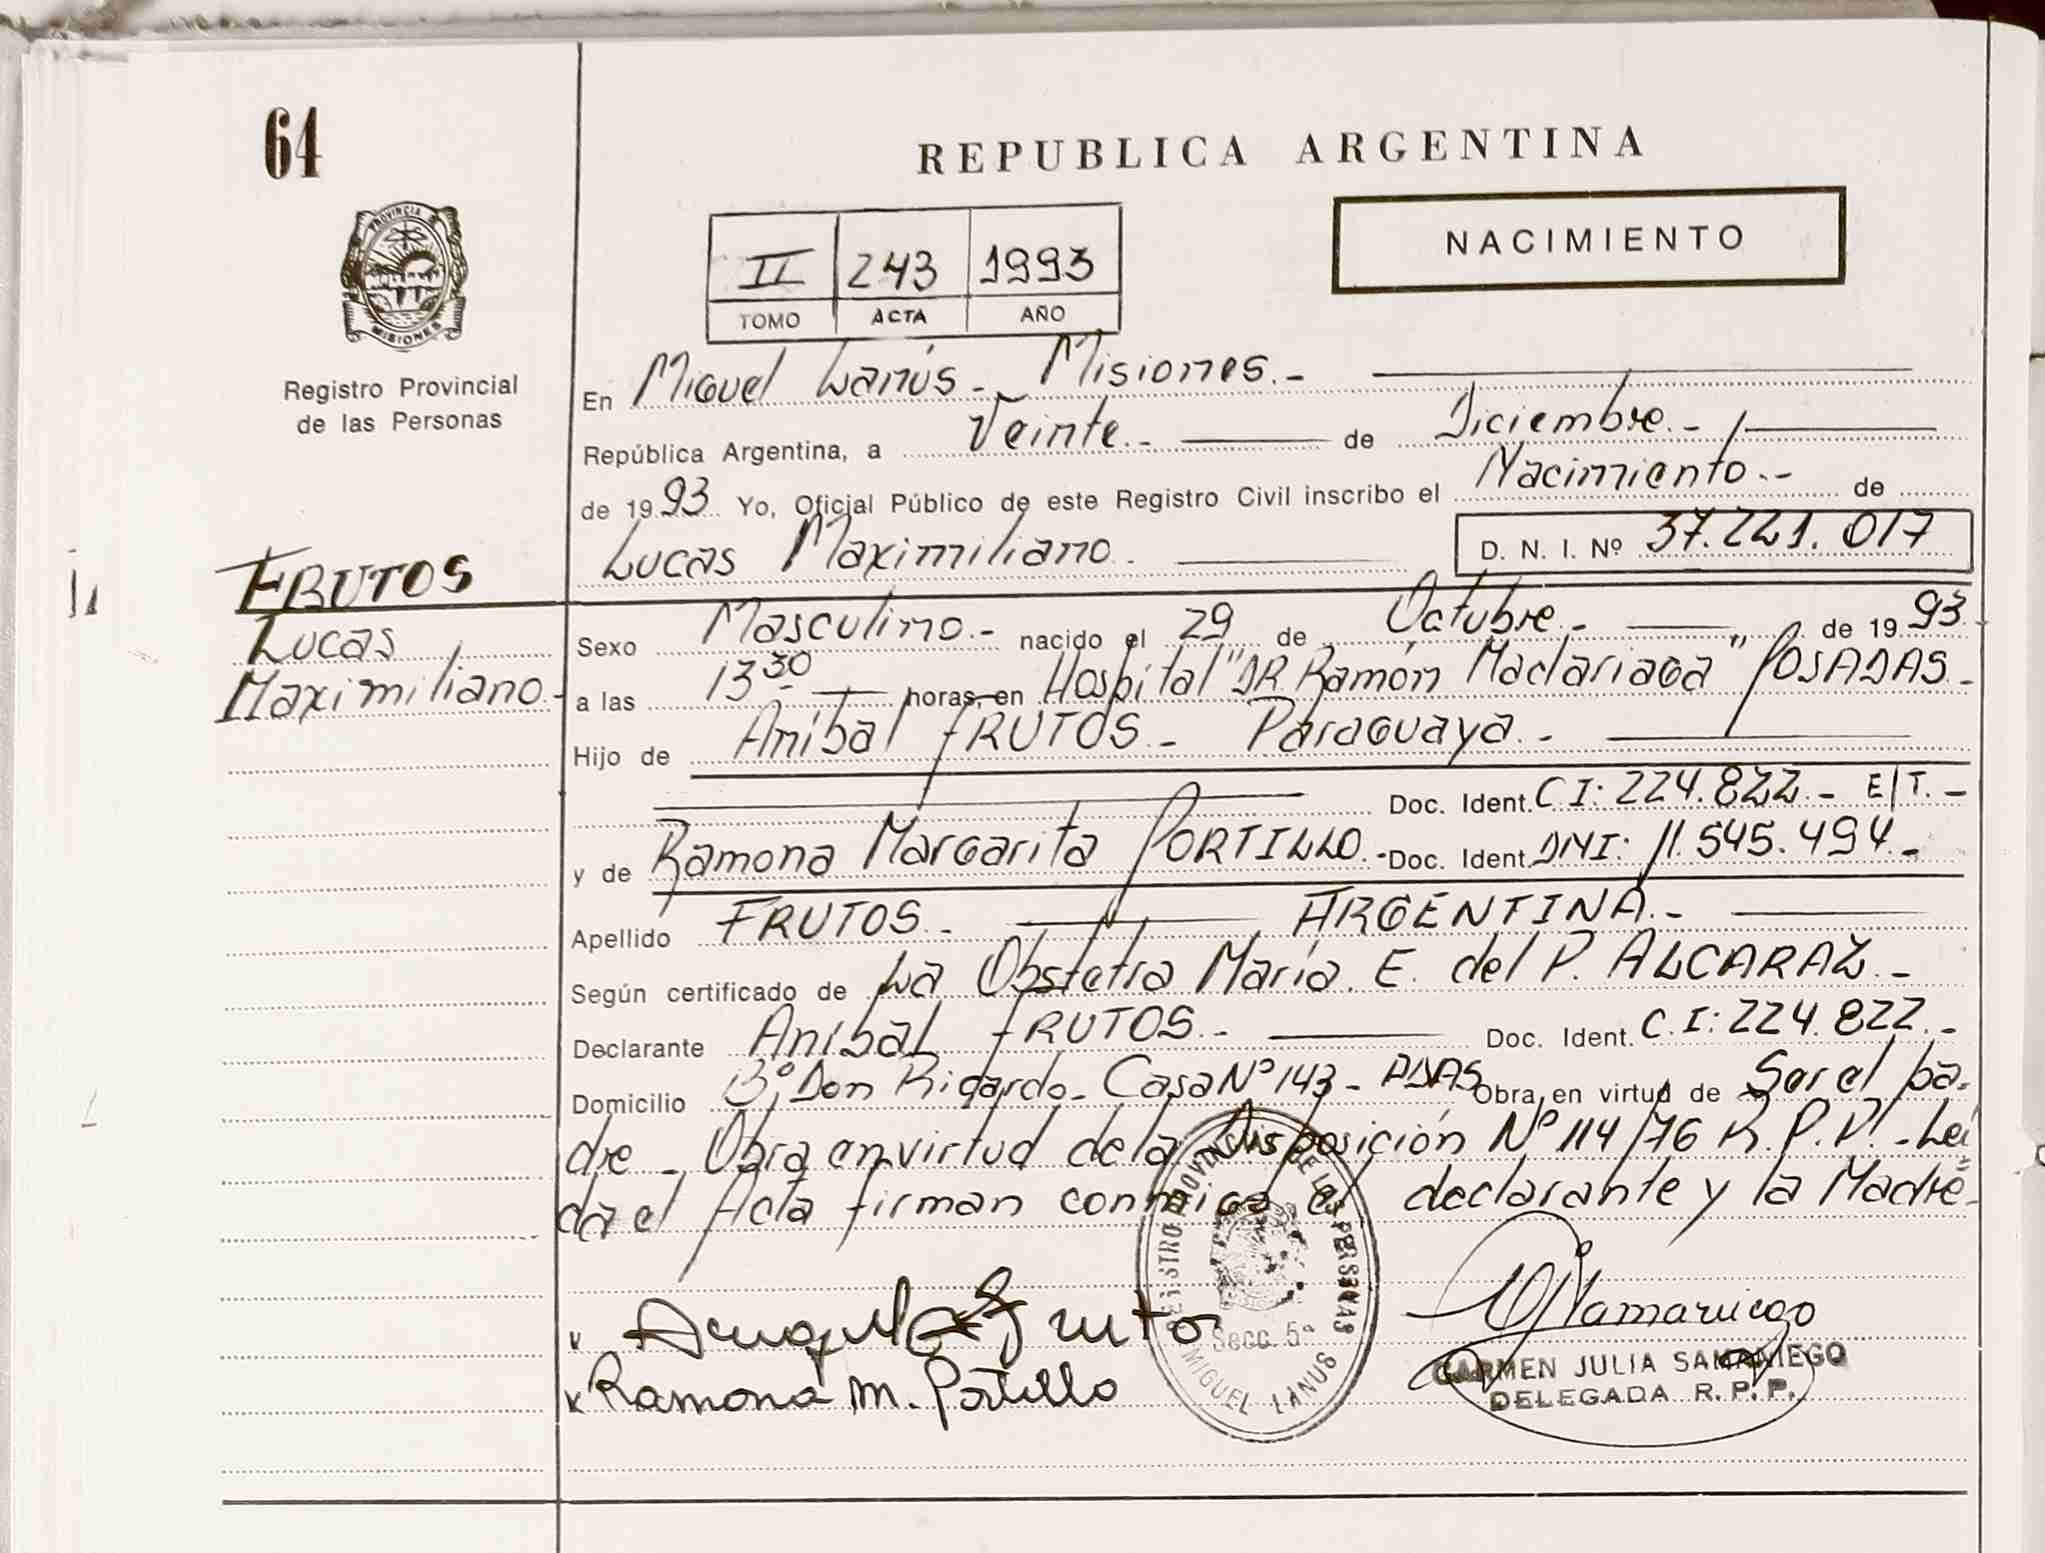 64
REPUBLICA ARGENTINA
NACIMIENTO
II 243 1993
TOMO ACTA AÑO
PROVINCIA DE
MISIONES
Registro Provincial
de las Personas
En Miguel Lanús - Misiones.-
República Argentina, a Veinte.- de Diciembre.-
de 1993 Yo, Oficial Público de este Registro Civil inscribo el Nacimiento.- de
Lucas Maximiliano. D. N. I. Nº 37.221.017
FRUTOS
Lucas
Maximiliano.-
Sexo Masculino.- nacido el 29 de Octubre.- de 1993
a las 13 30 horas, en Hospital "DR Ramón Madariaga" POSADAS.-
Hijo de Aníbal FRUTOS.- Paraguaya.-
Doc. Ident. C I: 224.822.- E/T.-
y de Ramona Margarita PORTILLO.- Doc. Ident. DNI: 11.545.494.-
Apellido FRUTOS.- ARGENTINA.-
Según certificado de La Obstetra María. E. del P. ALCARAZ.-
Declarante Aníbal FRUTOS.- Doc. Ident. C.I: 224.822.-
Domicilio Bº Don Ricardo - Casa Nº 143 - PDAS Obra en virtud de Ser el pa-
dre - Obra en virtud de la Disposición Nº 114/76 R.P.P. - Leí
da el Acta firman conmigo el declarante y la Madre-
Ramona M. Portillo
REGISTRO PROVINCIAL DE LAS PERSONAS
Secc. 5ª
MIGUEL LANUS
CARMEN JULIA SAMANIEGO
DELEGADA R. P. P.